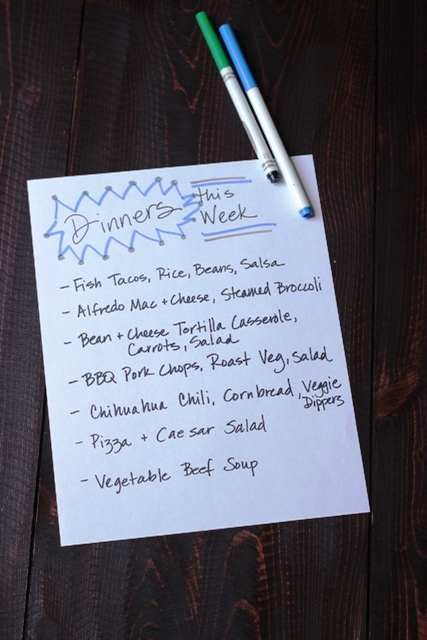 Dinners this
Week
- Fish Tacos, Rice, Beans, Salsa
- Alfredo Mac + Cheese, Steamed Broccoli
- Bean + Cheese Tortilla Casserole,
Carrots, Salad
- BBQ Pork Chops, Roast Veg, Salad
- Chihuahua Chili, Cornbread, Veggie
Dippers
- Pizza + Caesar Salad
- Vegetable Beef Soup